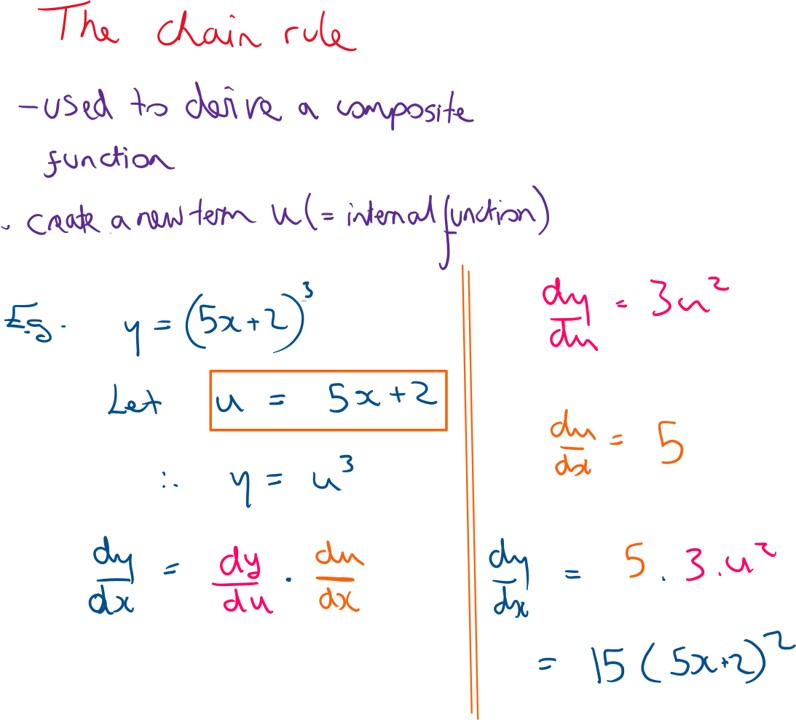 The chain rule
- used to derive a composite
function
. create a new term u (= internal function)
E.g. y = (5x+2)³
Let u = 5x+2
∴ y = u³
dy/dx = dy/du . du/dx
dy/du = 3u²
du/dx = 5
dy/dx = 5 . 3 . u²
= 15 (5x+2)²